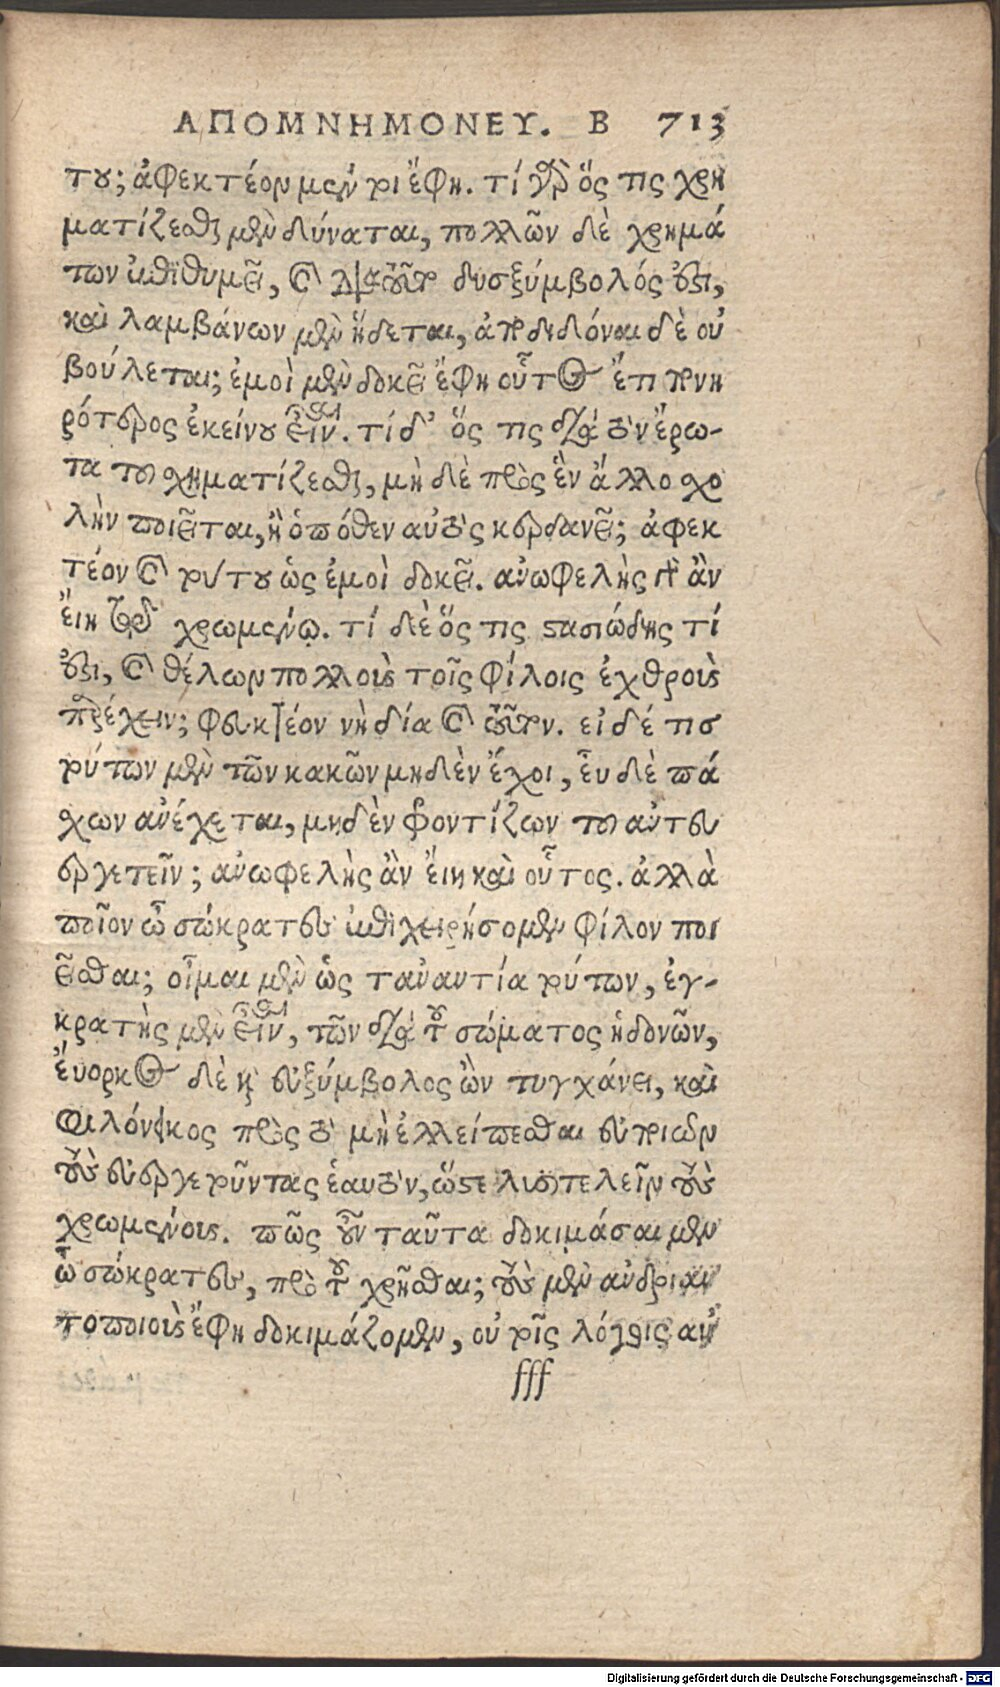 ΑΠΟΜΝΗΜΟΝΕΥ. Β 713
του; ἀφεκτέον μέν τοι ἔφη. τί γὰρ ὅς τις χρη
ματίζεσθαι μὲν δύναται, πολλῶν δὲ χρημά
των ἐπιθυμεῖ, καὶ διὰ τοῦτο δυσξύμβολός ἐστι,
καὶ λαμβάνων μὲν ἥδεται, ἀποδιδόναι δὲ οὐ
βούλεται; ἐμοὶ μὲν δοκεῖ ἔφη οὗτος ἔτι πονη
ρότερος ἐκείνου εἶναι. τί δ’ ὅς τις διὰ τὸν ἔρω-
τα τοῦ χρηματίζεσθαι, μὴ δὲ πρὸς ἓν ἄλλο σχο
λὴν ποιεῖται, ἢ ὁπόθεν αὐτὸς κερδανεῖ; ἀφεκ
τέον καὶ τούτου ὡς ἐμοὶ δοκεῖ. ἀνωφελὴς γὰρ ἂν
εἴη τῷ χρωμένῳ. τί δὲ ὅς τις στασιώδης τί
ἐστι, καὶ θέλων πολλοὺς τοῖς φίλοις ἐχθροὺς
παρέχειν; φευκτέον νὴ δία καὶ τοῦτον. εἰ δέ τισ
τούτων μὲν τῶν κακῶν μηδὲν ἔχοι, εὖ δὲ πά
σχων ἀνέχεται, μηδὲν φροντίζων τοῦ ἀντευ
εργετεῖν; ἀνωφελὴς ἂν εἴη καὶ οὗτος. ἀλλὰ
ποῖον ὦ σώκρατες ἐπιχειρήσομεν φίλον ποι
εῖσθαι; οἶμαι μὲν ὡς τἀναντία τούτων, ἐγ-
κρατὴς μὲν εἶναι, τῶν διὰ τοῦ σώματος ἡδονῶν,
εὔορκος δὲ καὶ εὐξύμβολος ὢν τυγχάνει, καὶ
φιλόνεικος πρὸς τὸ μὴ ἐλλείπεσθαι εὐποιῶν
τοὺς εὐεργετοῦντας ἑαυτὸν, ὥστε λυσιτελεῖν τοὺς
χρωμένοις. πῶς οὖν ταῦτα δοκιμάσαιμεν
ὦ σώκρατες, πρὸ τοῦ χρῆσθαι; τοὺς μὲν ἀνδριαν
τοποιοὺς ἔφη δοκιμάζομεν, οὐ τοῖς λόγοις αὐ
fff
Digitalisierung gefördert durch die Deutsche Forschungsgemeinschaft - DFG